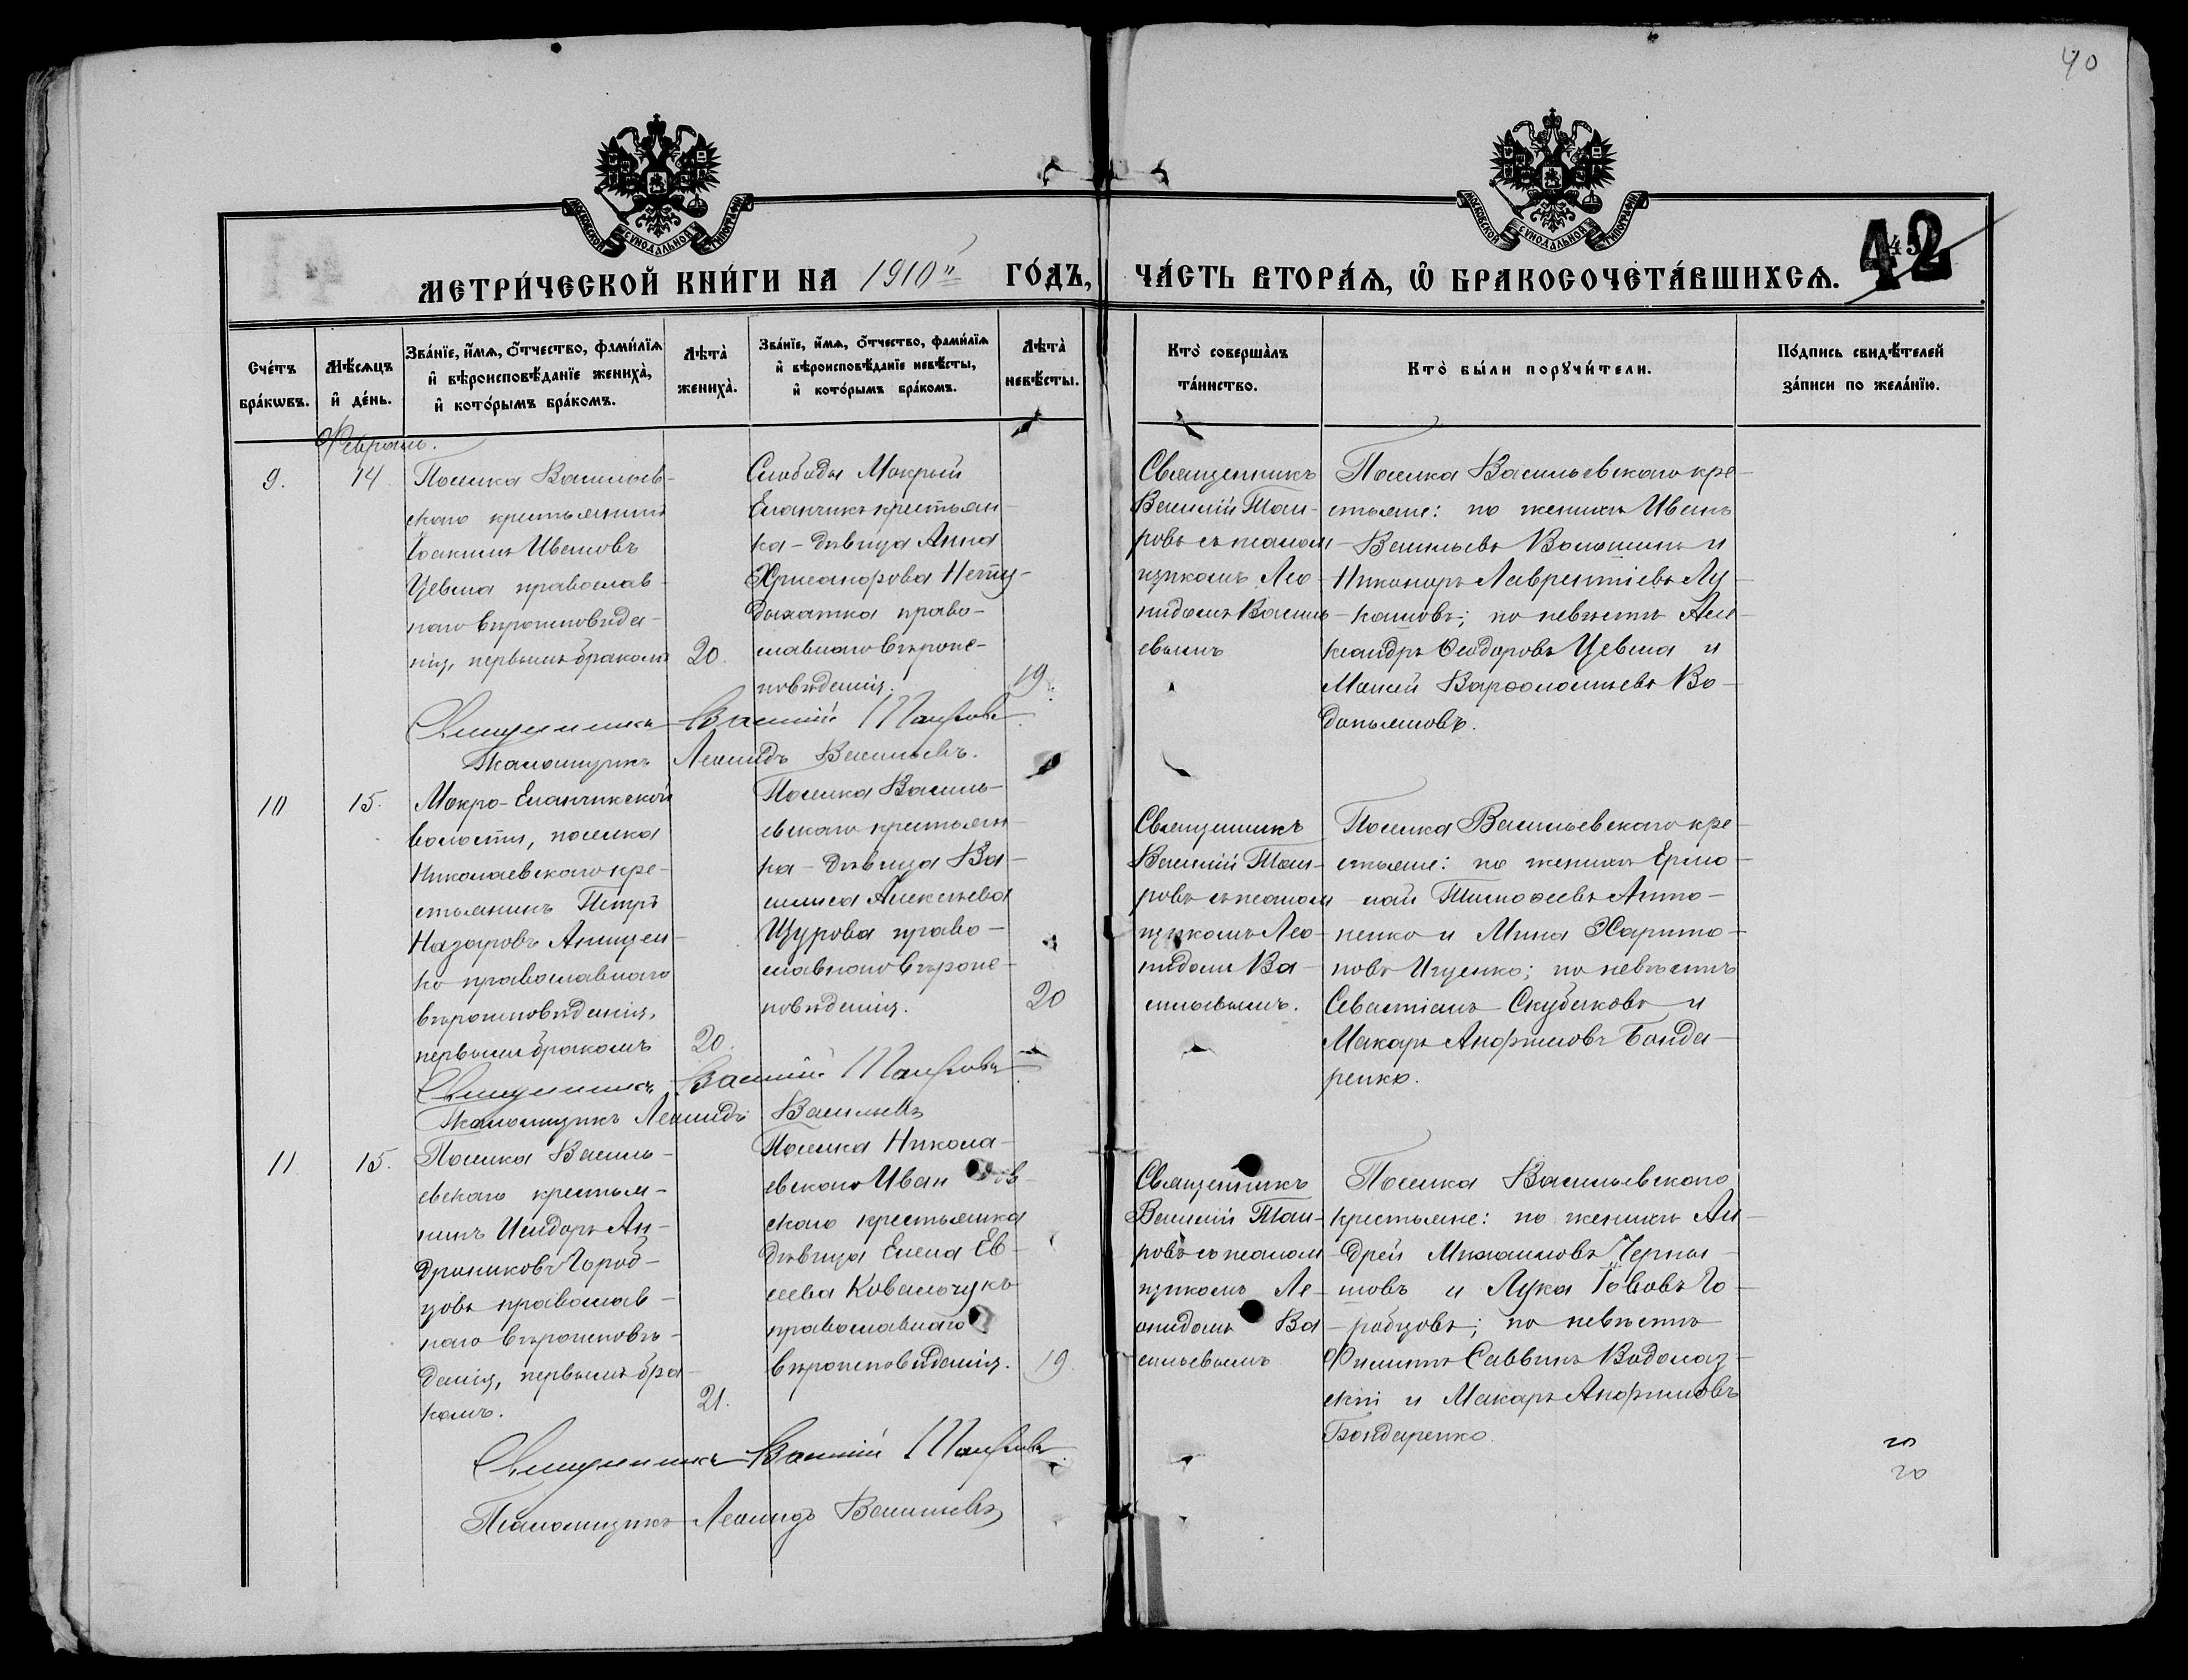 40
МОСКОВСКОЙ СѴНОДАЛЬНОЙ ТИПОГРАФІИ
МОСКОВСКОЙ СѴНОДАЛЬНОЙ ТИПОГРАФІИ
МЕТРИ́ЧЕСКОЙ КНИ́ГИ НА 1910й ГО́ДЪ,
ЧА́СТЬ ВТОРА́Ѧ, Ѡ҆ БРАКОСОЧЕТА́ВШИХСѦ.
42
Сче́тъ бра́кѡвъ.
Мѣ́сѧцъ и҆ де́нь.
Зва́нїе, и҆́мѧ, ѻ҆́тчество, фами́лїѧ
и҆ вѣроисповѣ́данїе жениха̀,
и҆ кото́рымъ бра́комъ.
Лѣта̀ жениха̀.
Зва́нїе, и҆́мѧ, ѻ҆́тчество, фами́лїѧ
и҆ вѣроисповѣ́данїе невѣ́сты,
и҆ кото́рымъ бра́комъ.
Лѣта̀ невѣ́сты.
Кто̀ соверша́лъ
та́инство.
Кто̀ бы́ли порꙋчи́тели.
По́дпись свидѣ́телей
за́писи по жела́нїю.
Февраль.
9.
14
Поселка Васильев-
скаго крестьянинъ
Іоакимъ Ивановъ
Цевма православ-
наго вѣроисповѣда-
нія, первымъ бракомъ
20.
Слободы Мокрый
Еланчикъ крестьян-
ка - дѣвица Анна
Хрисанфова Непу-
дыхатка право-
славнаго вѣроис-
повѣданія.
19.
Священникъ
Василій Таи-
ровъ съ псалом-
щикомъ Лео-
нидомъ Василь-
евымъ
Поселка Васильевскаго кре-
стьяне: по женихѣ Иванъ
Васильевъ Волошинъ и
Никаноръ Лаврентіевъ Лу-
кашовъ; по невѣстѣ Але-
ксандръ Ѳеодоровъ Цевма и
Моисей Варѳоломѣевъ Во-
допьяновъ.
Священникъ Василій Таировъ
Псаломщикъ Леонидъ Васильевъ.
10
15.
Мокро-Еланчикской
волости, поселка
Николаевскаго кре-
стьянинъ Петръ
Назаровъ Анищен-
ко православнаго
вѣроисповѣданія,
первымъ бракомъ
20.
Поселка Василь-
евскаго крестьян-
ка - дѣвица Ва-
силиса Алексѣева
Щурова право-
славнаго вѣроис-
повѣданія.
20
Священникъ
Василій Таи-
ровъ съ псалом-
щикомъ Лео-
нидомъ Ва-
сильевымъ.
Поселка Васильевскаго кре-
стьяне: по женихѣ Ермо-
лай Тимоѳеевъ Анто-
ненко и Мина Харито-
новъ Ищенко; по невѣстѣ
Севастіанъ Скубаковъ и
Макаръ Анфимовъ Бонда-
ренко.
Священникъ Василій Таировъ
Псаломщикъ Леонидъ Васильевъ
11
15.
Поселка Василь-
евскаго крестья-
нинъ Исидоръ Ан-
дрониковъ Гороб-
цовъ православ-
наго вѣроисповѣ-
данія, первымъ бра-
комъ.
21.
Поселка Никола-
евскаго Иван
скаго крестьянка
дѣвица Елена Ев-
сеева Ковальчукъ
православнаго
вѣроисповѣданія.
19.
Священникъ
Василій Таи-
ровъ съ псалом-
щикомъ Ле-
онидомъ Ва-
сильевымъ
Поселка Васильевскаго
крестьяне: по женихѣ Ан-
дрей Михаиловъ Черны-
шовъ и Лука Іововъ Го-
робцовъ; по невѣстѣ
Филиппъ Саввинъ Водолаз-
скій и Макаръ Анфимовъ
Бондаренко.
Священникъ Василій Таировъ
Псаломщикъ Леонидъ Васильевъ